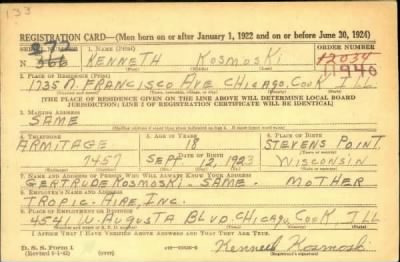 133
REGISTRATION CARD—(Men born on or after January 1, 1922 and on or before June 30, 1924)
SERIAL NUMBER 1. NAME (Print) ORDER NUMBER
N 366 KENNETH KOSMOSKI 12034
(First) (Middle) (Last) 11940
2. PLACE OF RESIDENCE (Print)
1735 N. FRANCISCO AVE CHICAGO, COOK ILL
[THE PLACE OF RESIDENCE GIVEN ON THE LINE ABOVE WILL DETERMINE LOCAL BOARD
JURISDICTION; LINE 2 OF REGISTRATION CERTIFICATE WILL BE IDENTICAL]
3. MAILING ADDRESS
SAME
4. TELEPHONE 5. AGE IN YEARS 6. PLACE OF BIRTH
ARMITAGE 18 STEVENS POINT,
7457 SEPT 12, 1923 WISCONSIN
7. NAME AND ADDRESS OF PERSON WHO WILL ALWAYS KNOW YOUR ADDRESS
GERTRUDE KOSMOSKI - SAME. - MOTHER
8. EMPLOYER'S NAME AND ADDRESS
TROPIC-AIRE, INC.
9. PLACE OF EMPLOYMENT OR BUSINESS
4541 W. AUGUSTA BLVD. CHICAGO, COOK, ILL
I AFFIRM THAT I HAVE VERIFIED ABOVE ANSWERS AND THAT THEY ARE TRUE.
D. S. S. Form 1
(Revised 6-1-42) (over) Kenneth Kosmoski
(Registrant's signature)